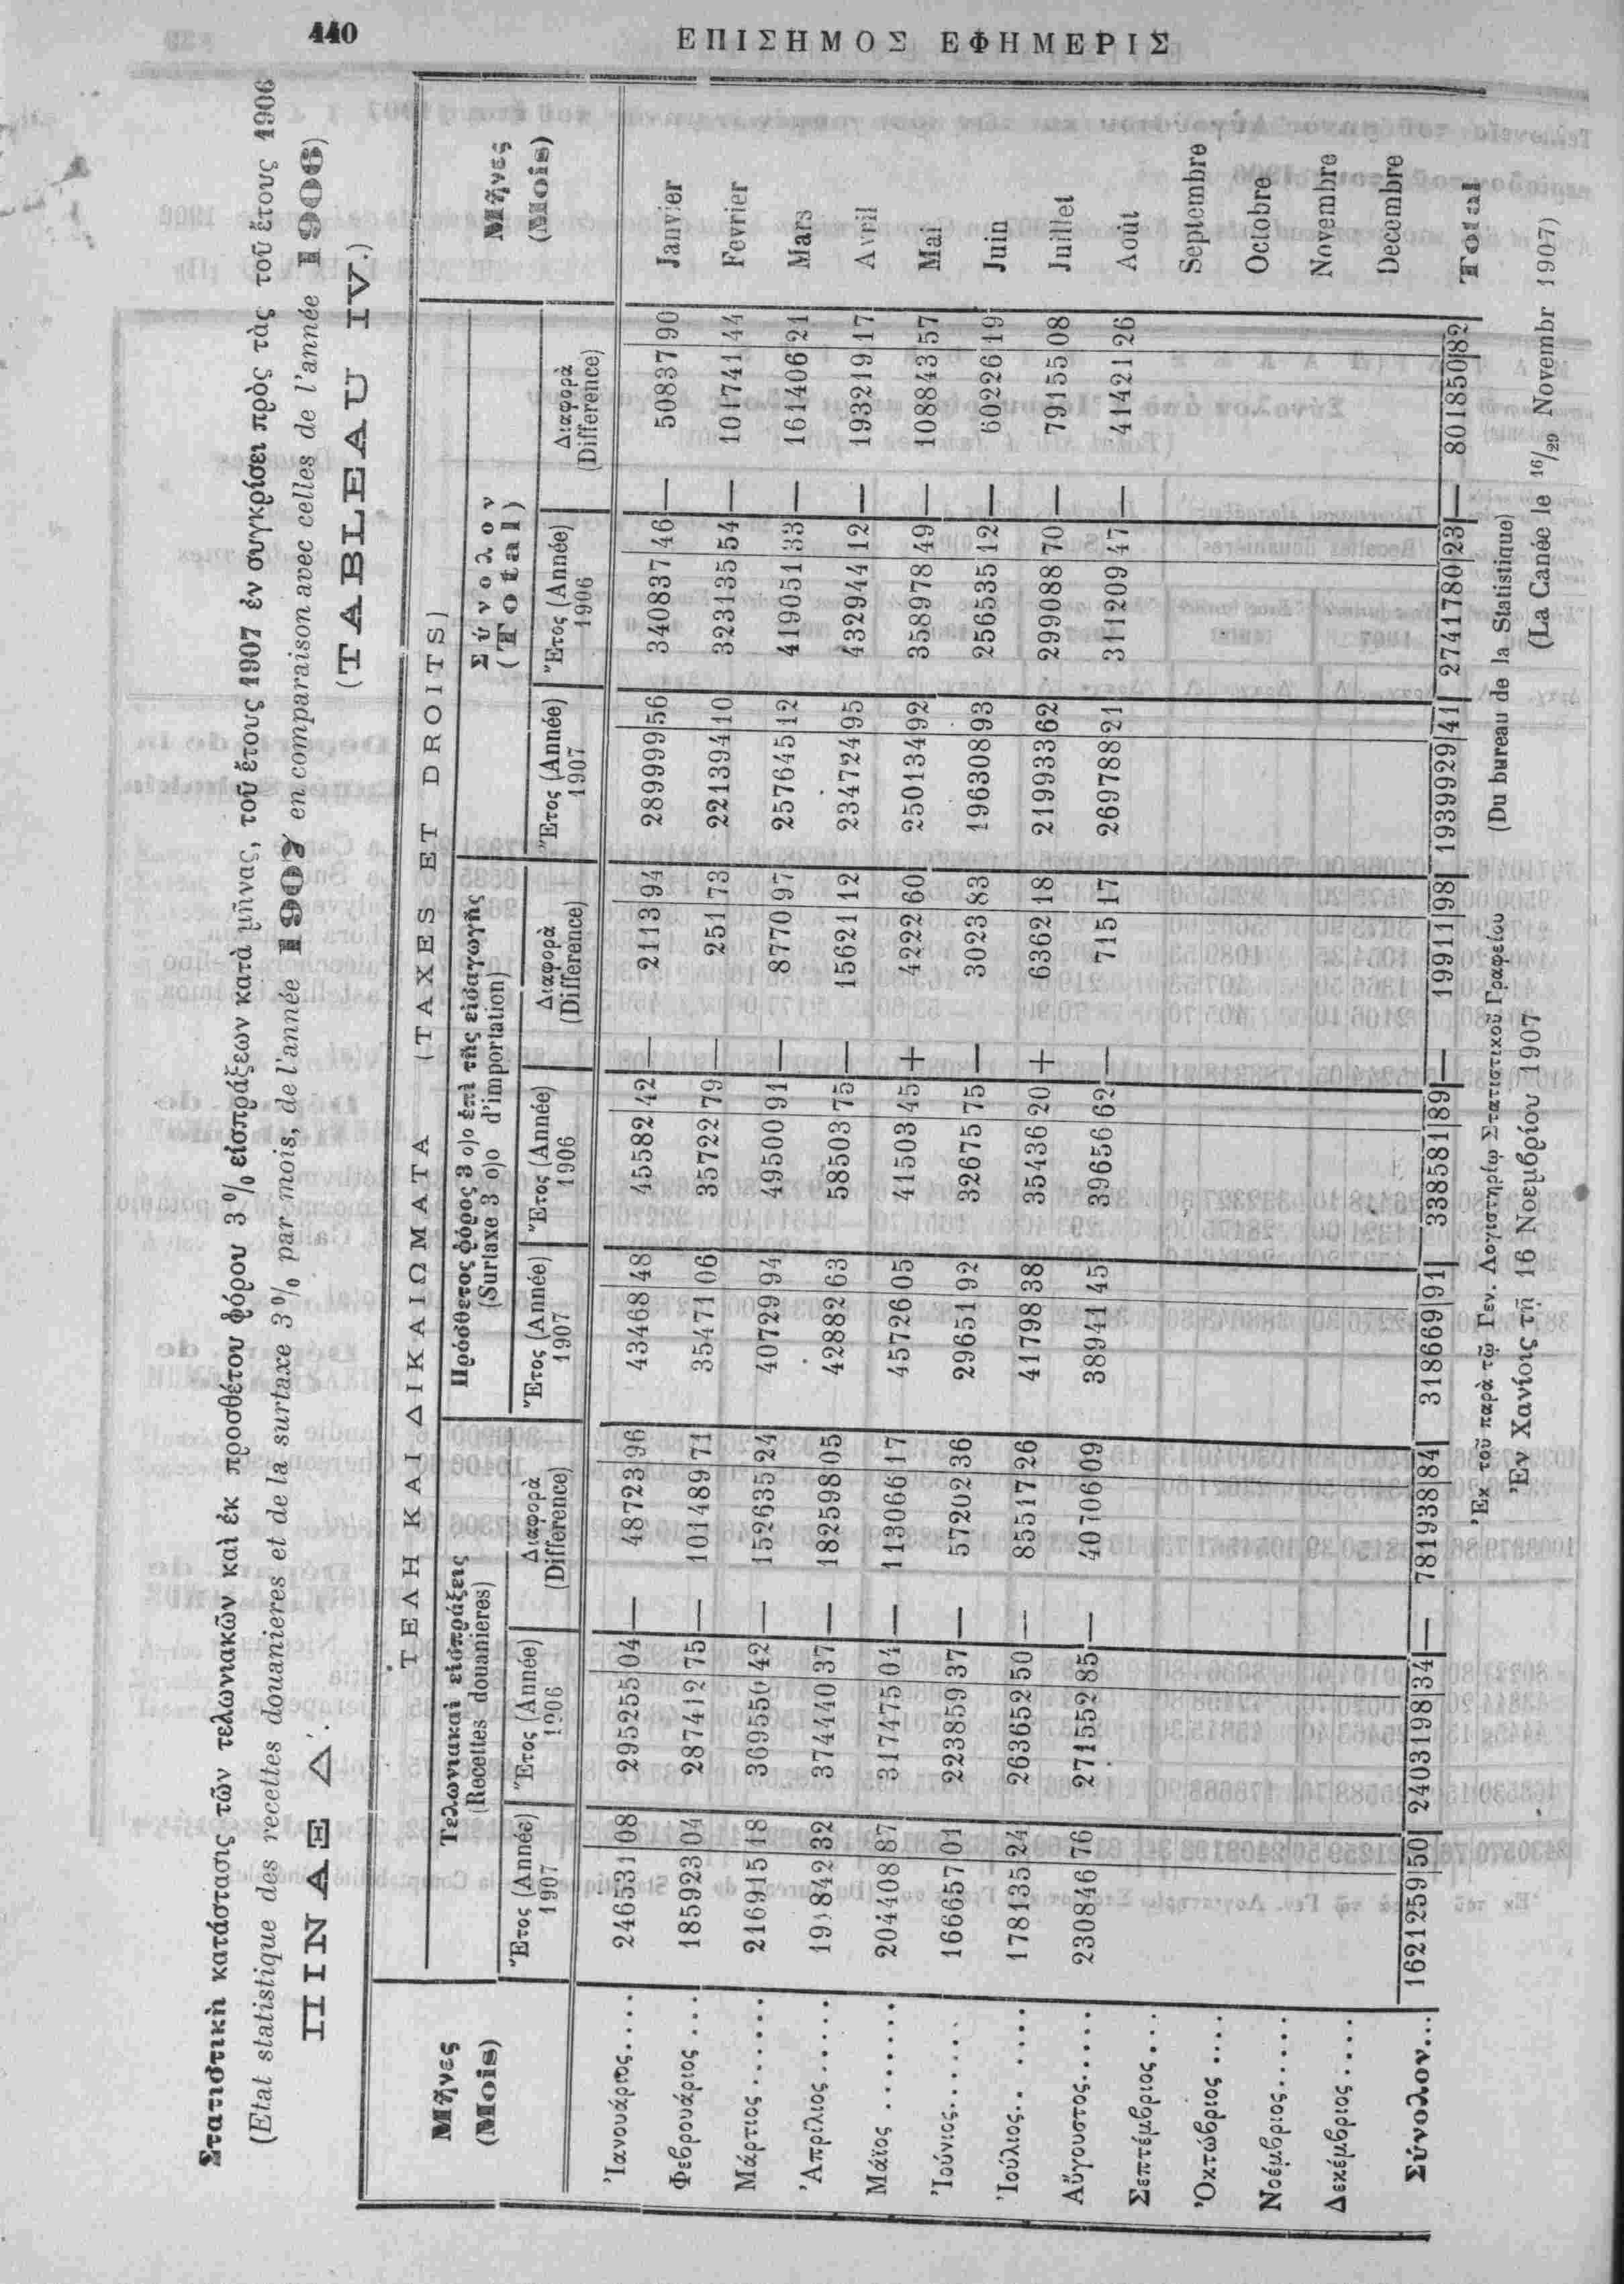 440
ΕΠΙΣΗΜΟΣ ΕΦΗΜΕΡΙΣ
Στατιστικὴ κατάστασις τῶν τελωνιακῶν καὶ ἐκ προσθέτου φόρου 3 % εἰσπράξεων κατὰ μῆνας, τοῦ ἔτους 1907 ἐν συγκρίσει πρὸς τὰς τοῦ ἔτους 1906
(Etat statistique des recettes douanieres et de la surtaxe 3 % par mois, de l'année 1907 en comparaison avec celles de l'année 1906)
ΠΙΝΑΞ Δ'. (TABLEAU IV.)
Μῆνες (Mois) ΤΕΛΗ ΚΑΙ ΔΙΚΑΙΩΜΑΤΑ (TAXES ET DROITS) Μῆνες (Mois)
Τελωνιακαὶ εἰσπράξεις (Recettes douanieres) Πρόσθετος φόρος 3 ο)ο ἐπὶ τῆς εἰσαγωγῆς (Surtaxe 3 ο)ο d'importation) Σύνολον (Total)
Ἔτος (Année) 1907 Ἔτος (Année) 1906 Διαφορὰ (Difference) Ἔτος (Année) 1907 Ἔτος (Année) 1906 Διαφορὰ (Difference) Ἔτος (Année) 1907 Ἔτος (Année) 1906 Διαφορὰ (Difference)
Ἰανουάριος.... 246531 08 295255 04 — 48723 96 43468 48 45582 42 — 2113 94 289999 56 340837 46 — 50837 90 Janvier
Φεβρουάριος ... 185923 04 287412 75 — 101489 71 35471 06 35722 79 — 251 73 221394 10 323135 54 — 101741 44 Fevrier
Μάρτιος ...... 216915 18 369550 42 — 152635 24 40729 94 49500 91 — 8770 97 257645 12 419051 33 — 161406 21 Mars
Ἀπρίλιος ..... 191842 32 374440 37 — 182598 05 42882 63 58503 75 — 15621 12 234724 95 432944 12 — 193219 17 Avril
Μάϊος ....... 204408 87 317475 04 — 113066 17 45726 05 41503 45 + 4222 60 250134 92 358978 49 — 108843 57 Mai
Ἰούνιος..... 166657 01 223859 37 — 57202 36 29651 92 32675 75 — 3023 83 196308 93 256535 12 — 60226 19 Juin
Ἰούλιος.. .... 178135 24 263652 50 — 85517 26 41798 38 35436 20 + 6362 18 219933 62 299088 70 — 79155 08 Juillet
Αὔγουστος..... 230846 76 271552 85 — 40706 09 38941 45 39656 62 — 715 17 269788 21 311209 47 — 41421 26 Août
Σεπτέμβριος ... Septembre
Ὀκτώβριος .... Octobre
Νοέμβριος..... Novembre
Δεκέμβριος .... Decembre
Σύνολον... 1621259 50 2403198 34 — 781938 84 318669 91 338581 89 — 19911 98 1939929 41 2741780 23 — 801850 82 Total
Ἐκ τοῦ παρὰ τῷ Γεν. Λογιστηρίῳ Στατιστικοῦ Γραφείου (Du bureau de la Statistique)
Ἐν Χανίοις τῇ 16 Νοεμβρίου 1907 (La Canée le 16/29 Novembr 1907)